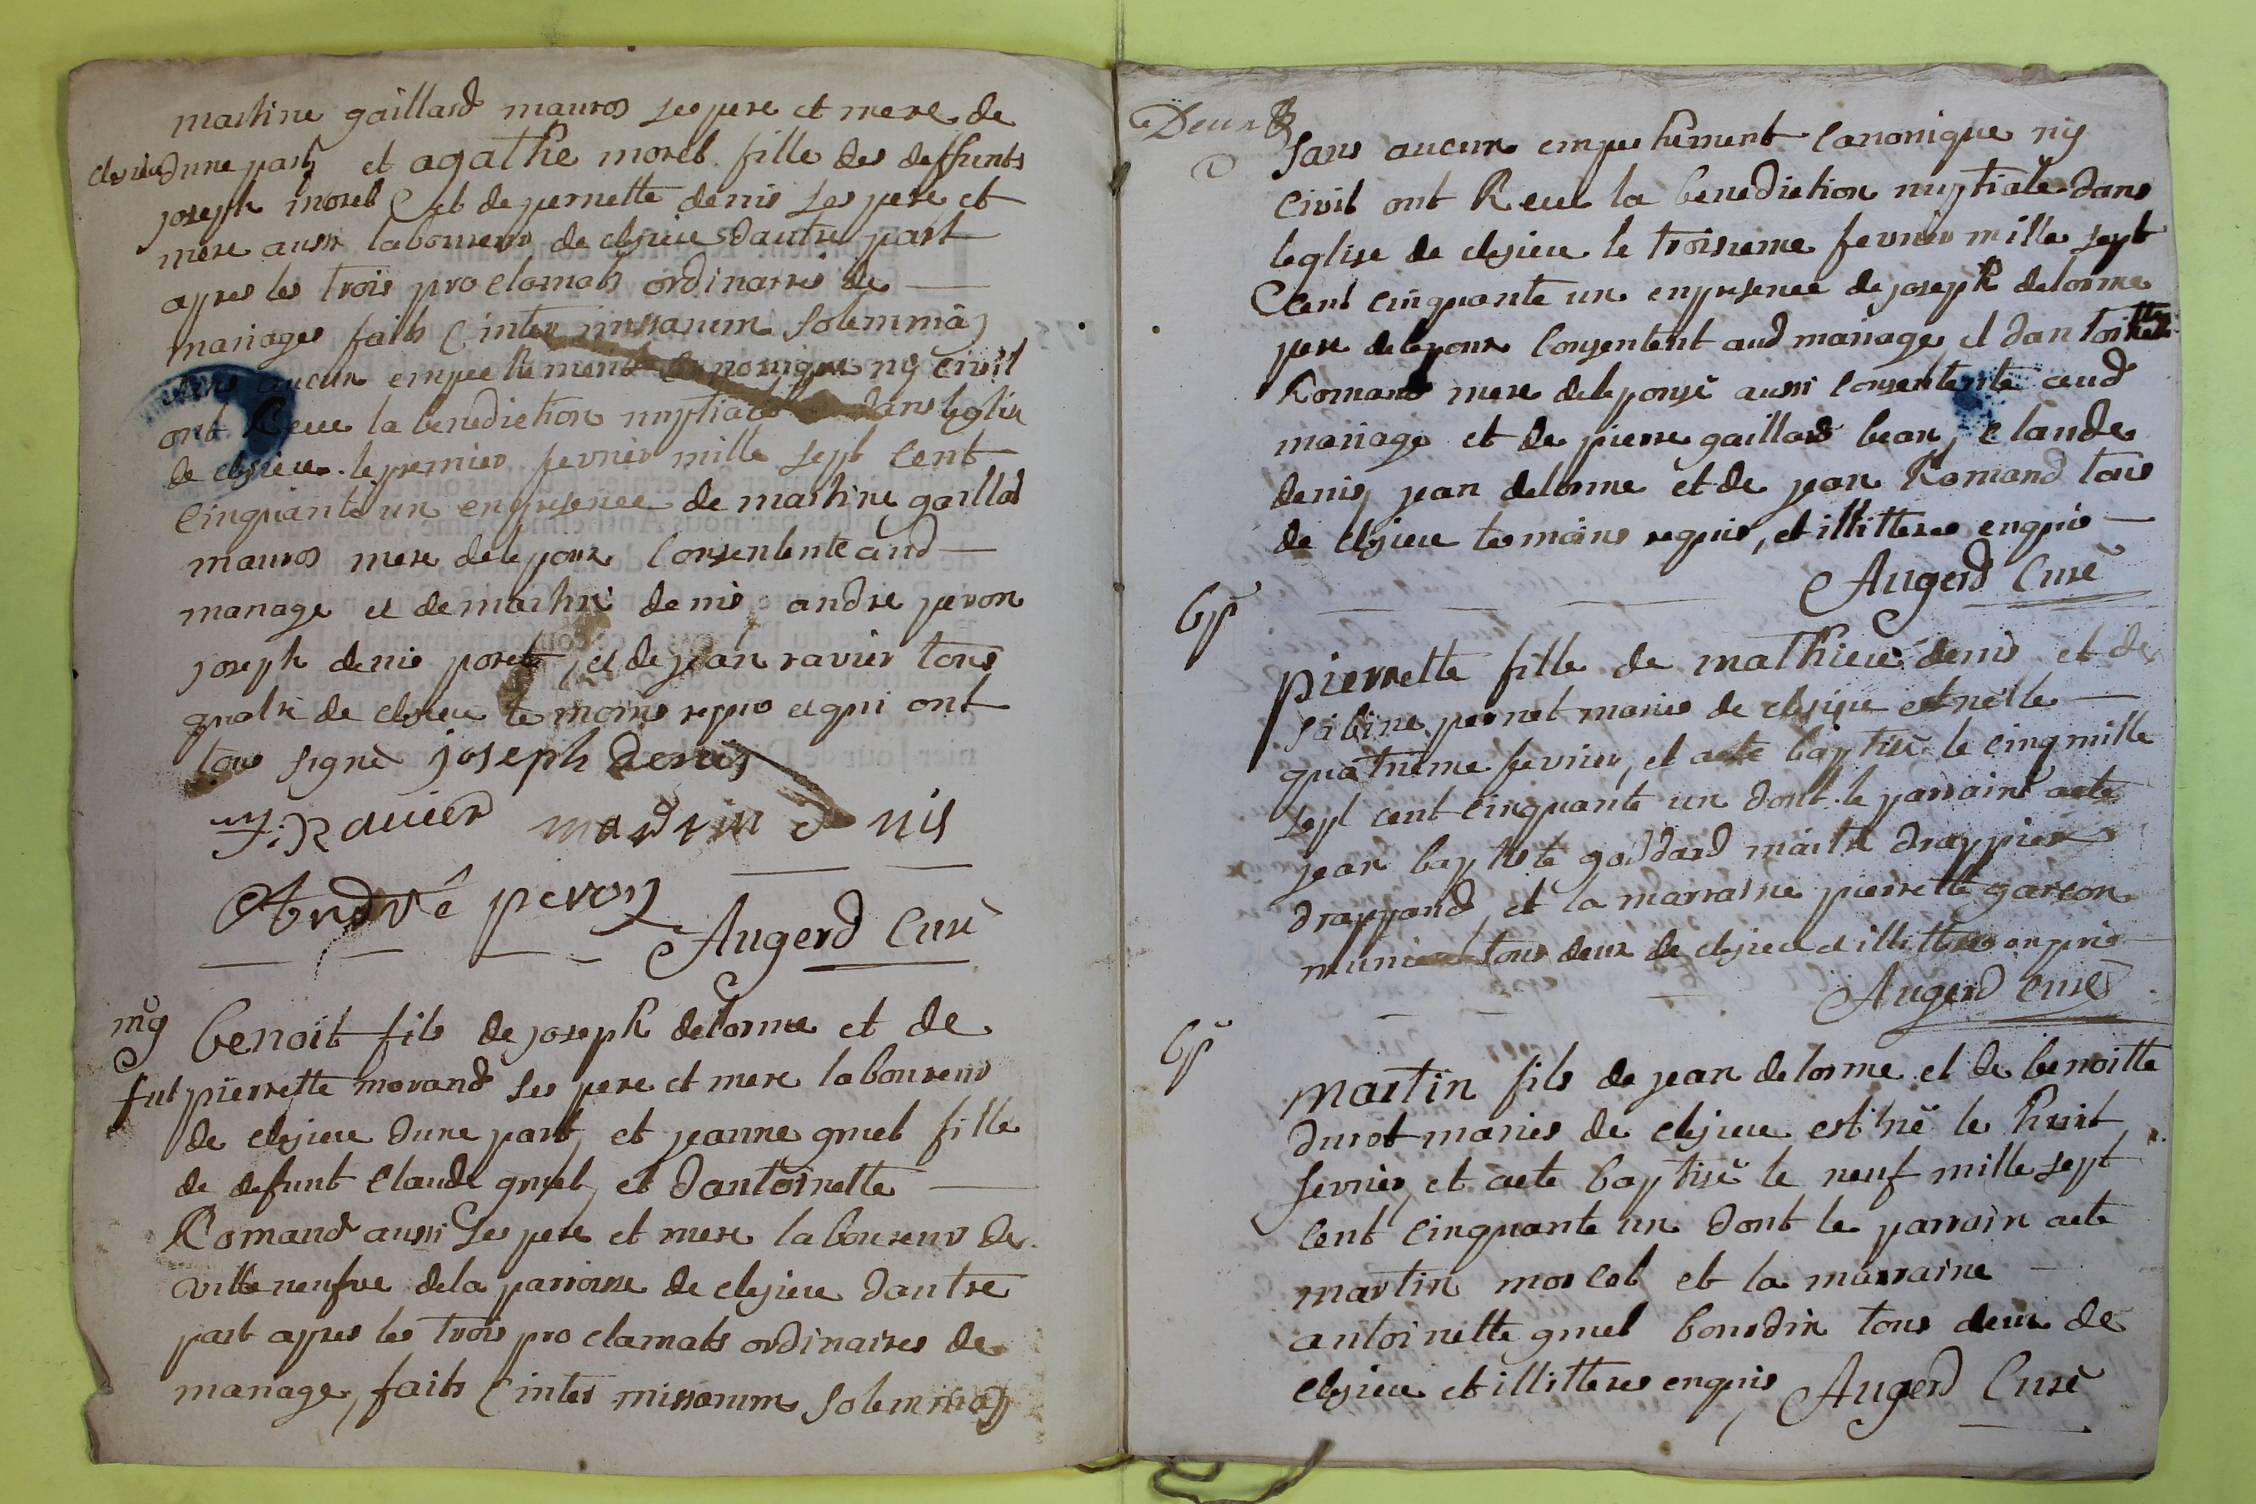 martine gaillard mauros ses pere et mere de
clesieu dune part et agathe morel fille des deffunts
joseph morel et de pernette denis ses pere et
mere aussi laboureurs de clesieu dautre part
apres les trois proclamats ordinaires de
mariages faits (inter missarum solemnia)
sans aucun empechement canonique ny civil
ont Receu la benediction nuptiale dans leglise
de clesieu le premier fevrier mille sept cent
cinquante un en presence de martine gaillard
mauros mere de lepoux consentente aud
mariage et de martin denis andre peron
joseph denis poret, et de jean ravier tous
quatre de clesieu temoins requis et qui ont
tous signè joseph denis
j: Ravier martin denis
André peron
Augerd Curè
mg
benoit fils de joseph delorme et de
fut pierrette morand ses pere et mere laboureurs
de clesieu dune part, et jeanne gruel fille
de defunt claude gruel, et dantoinette
Romand aussi ses pere et mere laboureurs de
villeneufve de la parroisse de clesieu dautre
part apres les trois proclamats ordinaires de
mariage, faits (inter missarum solemnia)
Deux
sans aucun empechement canonique ny
civil ont Receu la benediction nuptiale dans
leglise de clesieu le troisieme fevrier mille sept
cent cinquante un en presence de joseph delorme
pere de lepoux consentent aud mariage et dantoinette
Romand mere de leponse aussi consentente aud
mariage et de pierre gaillard bean, claude
denis, jean delorme et de jean Romand tous
de clesieu temoins requis, et illitteres enquis
Augerd Curè
bp
pierrette fille de mathieu denis et de
sabine pernet mariés de clesieu est nèe le
quatrieme fevrier, et a etè baptisèe le cinq mille
sept cent cinquante un dont le parrain a ete
jean baptiste goddard maitre drappier
drappand, et la marraine pierrette garcon
munier tous deux de clesieu et illitteres enquis
Augerd Curè
bp
martin fils de jean delorme et de benoitte
durot mariés de clesieu est nè le huit
fevrier, et a ete baptisè le neuf mille sept
cent cinquante un dont le parrain a ete
martin morcel et la marraine
antoinette gruel bourdin tous deux de
clesieu et illitteres enquis, Augerd Curè